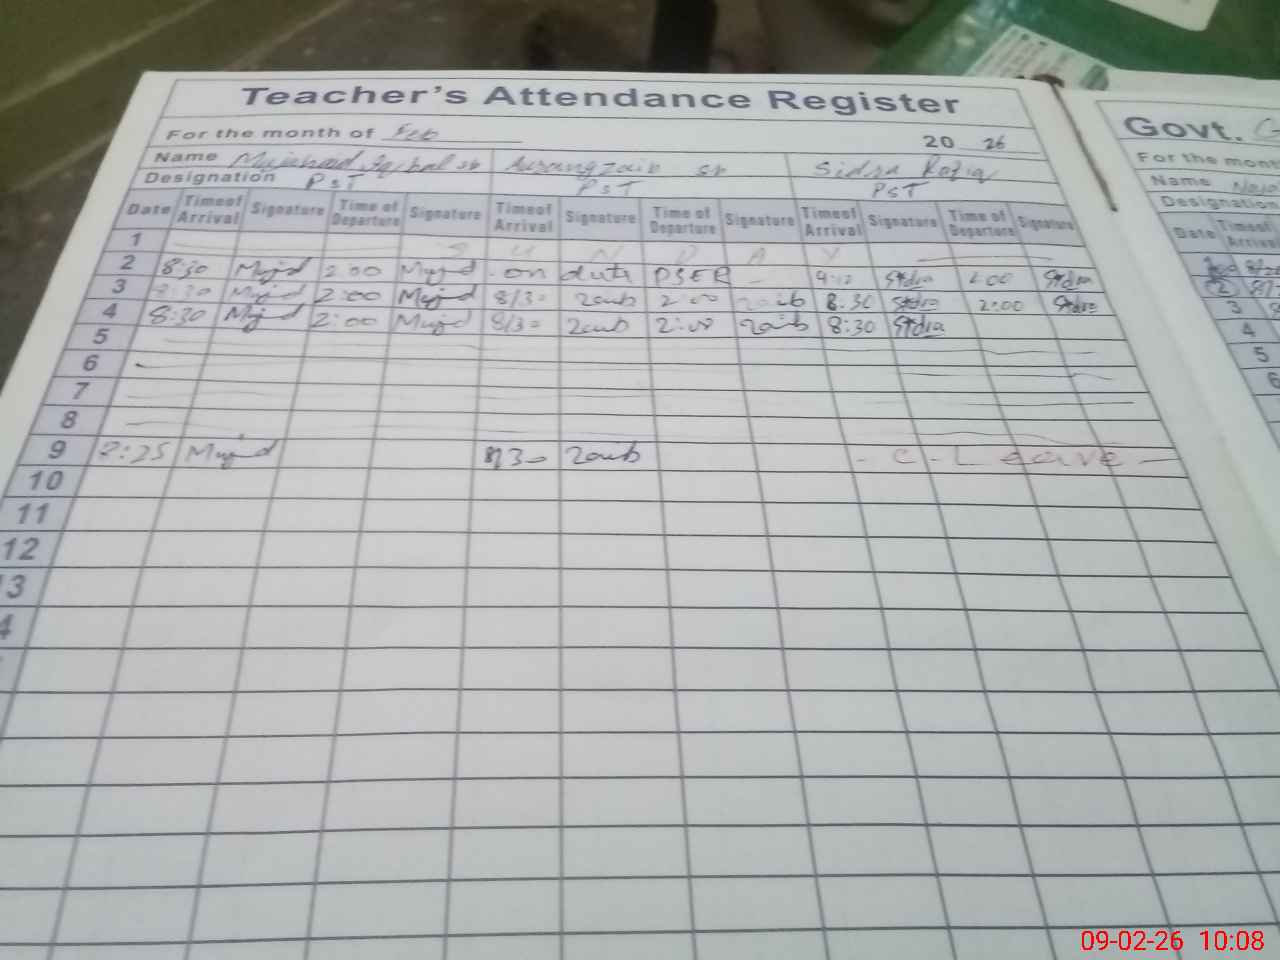 Teacher's Attendance Register
For the month of Feb 20 26
Name Sidra Rafiq
Designation PST PST PST
Date Timeof Arrival Signature Time of Departure Signature Timeof Arrival Signature Time of Departure Signature Timeof Arrival Signature Time of Departure Signature
1 S U N D A Y
2 8:30 Mujd 2:00 Mujd on duty PSER Sidra Sidra
3 8:30 Mujd 2:00 Mujd 8/30 Zaib 2:00 Zaib 8:30 Sidra 2:00 Sidra
4 8:30 Mujd 2:00 Mujd 8/30 Zaib 2:00 Zaib 8:30 Sidra
5
6
7
8
9 8:25 Mujd 8/30 Zaib - C-Leave -
10
11
12
3
4
Govt.
For the mont
Name
Designation
Date Timeof Arrival
3
4
5
6
09-02-26 10:08